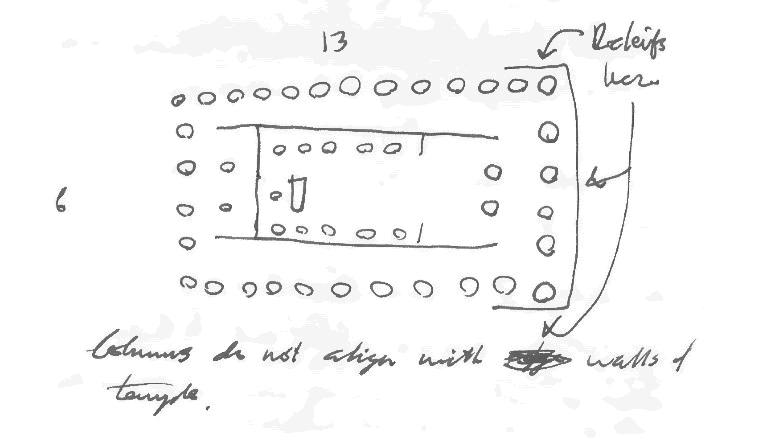 13
Releifs
here
6
Columns do not align with walls of
temple.